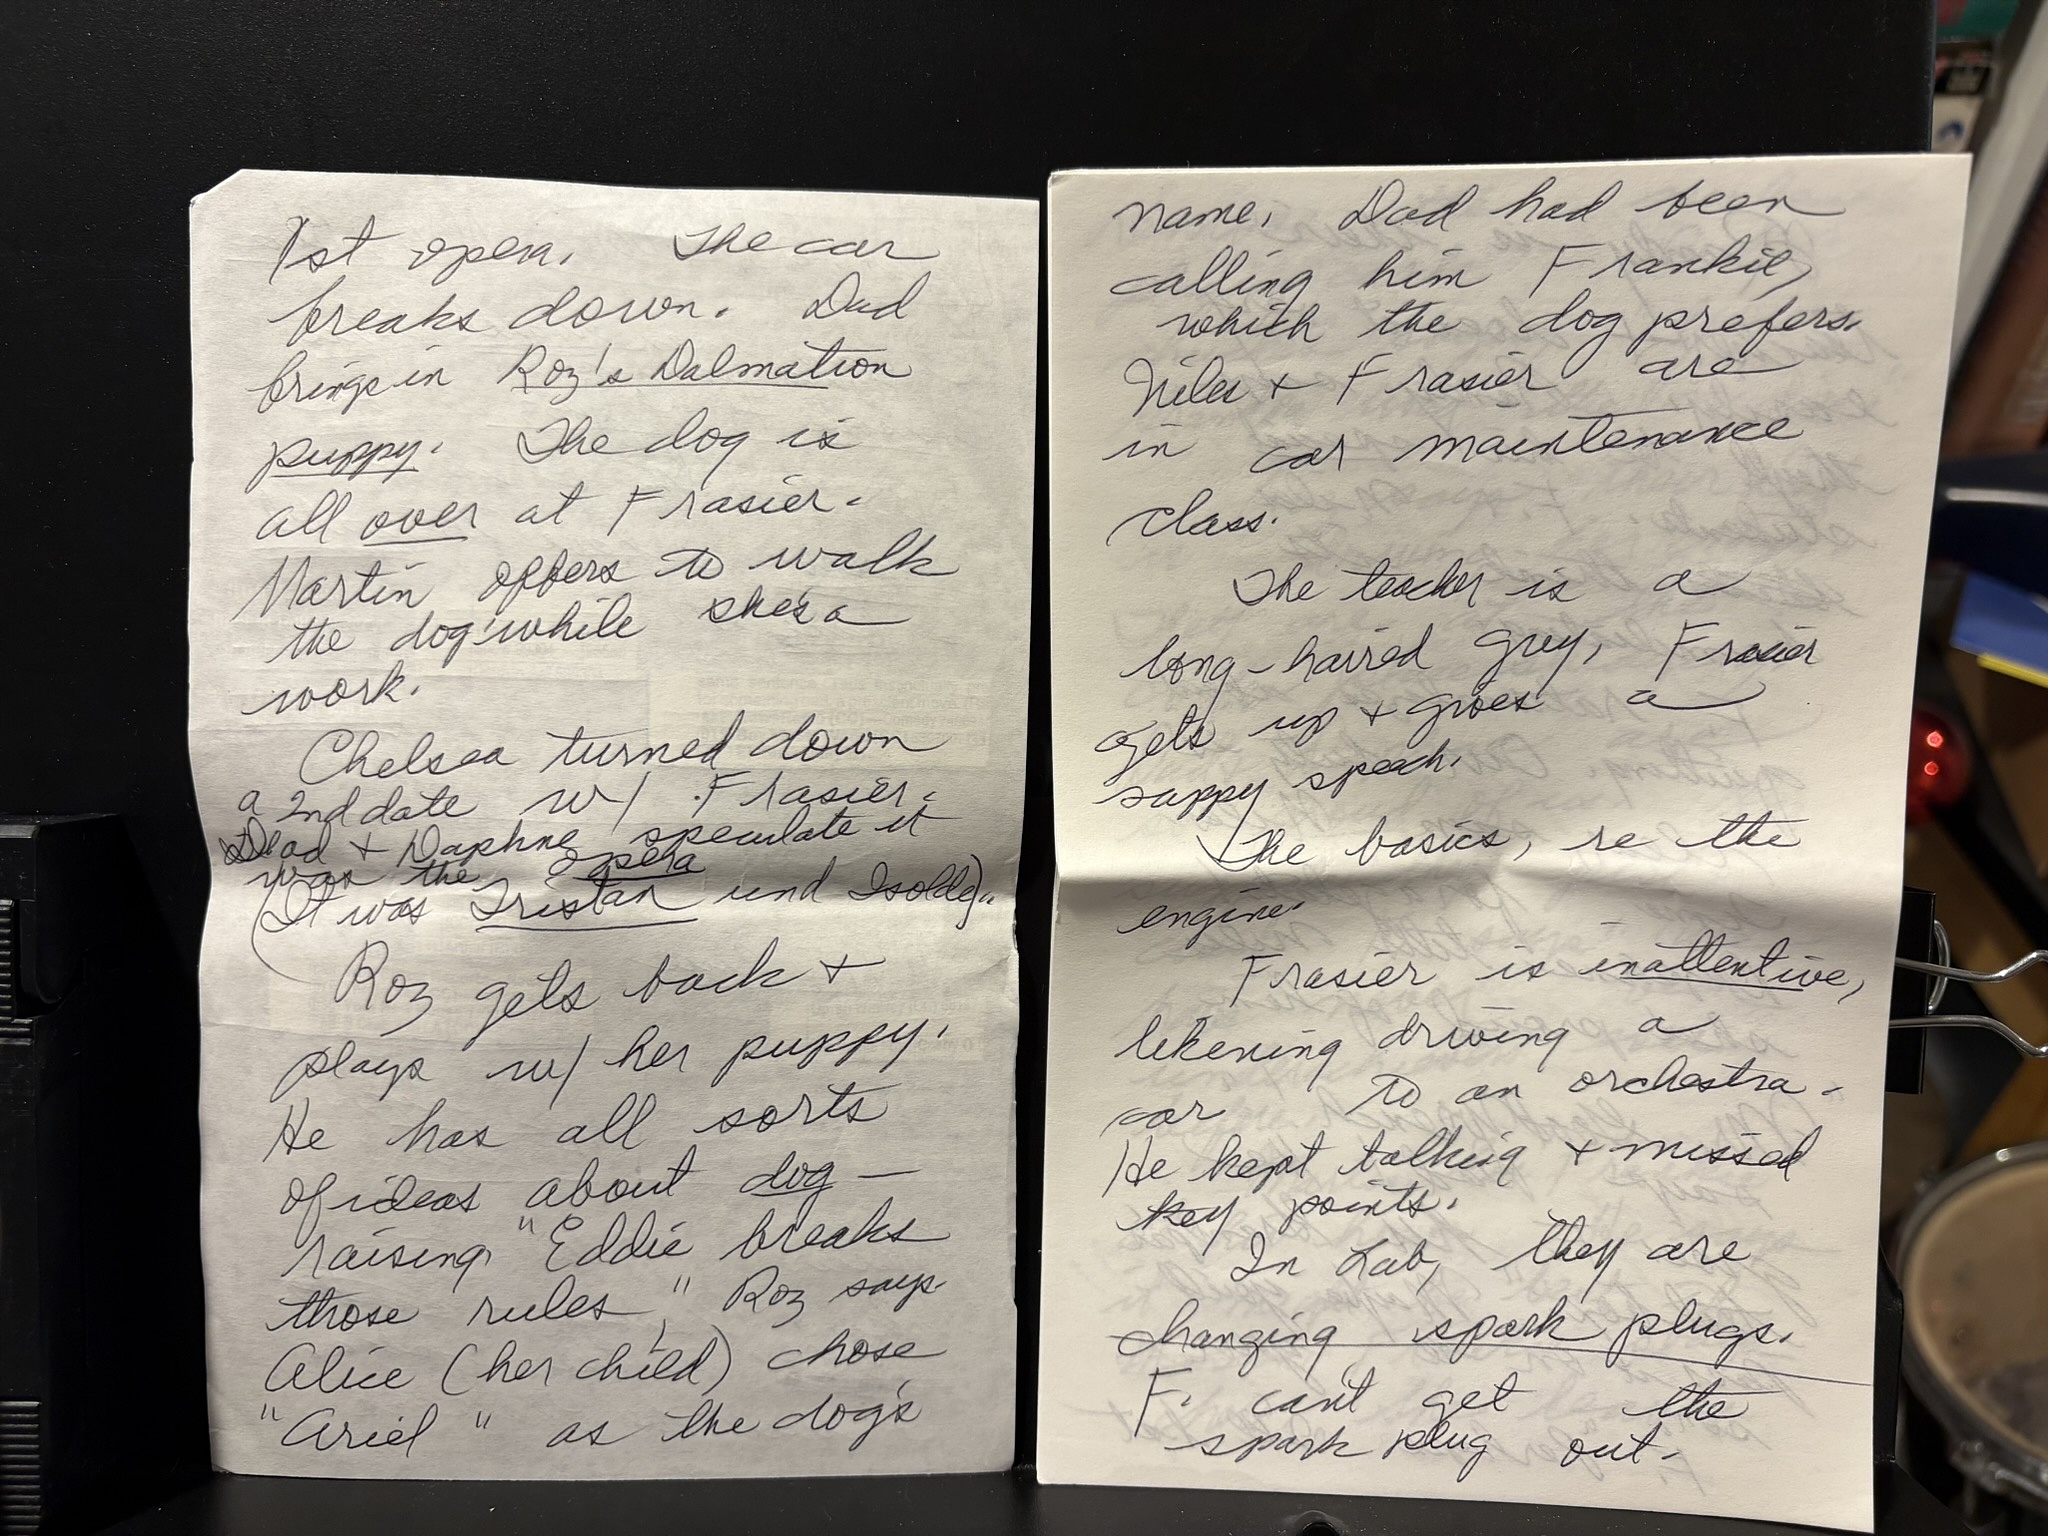 1st opera. The car
breaks down. Dad
brings in Roz's Dalmation
puppy. The dog is
all over at Frasier.
Martin offers to walk
the dog while she's a
work.
Chelsea turned down
a 2nd date w/ Frasier.
Dad + Daphne speculate it
was the opera
(It was Tristan und Isolde).
Roz gets back +
plays w/ her puppy.
He has all sorts
of ideas about dog-
raising. "Eddie breaks
those rules," Roz says.
Alice (her child) chose
"Ariel" as the dog's
name. Dad had been
calling him Frankie,
which the dog prefers.
Niles + Frasier are
in car maintenance
class.
The teacher is a
long-haired guy, Frasier
gets up + gives a
sappy speech.
The basics, re the
engine.
Frasier is inattentive,
likening driving a
car to an orchestra.
He kept talking + missed
key points.
In Lab, they are
changing spark plugs.
F. can't get the
spark plug out.